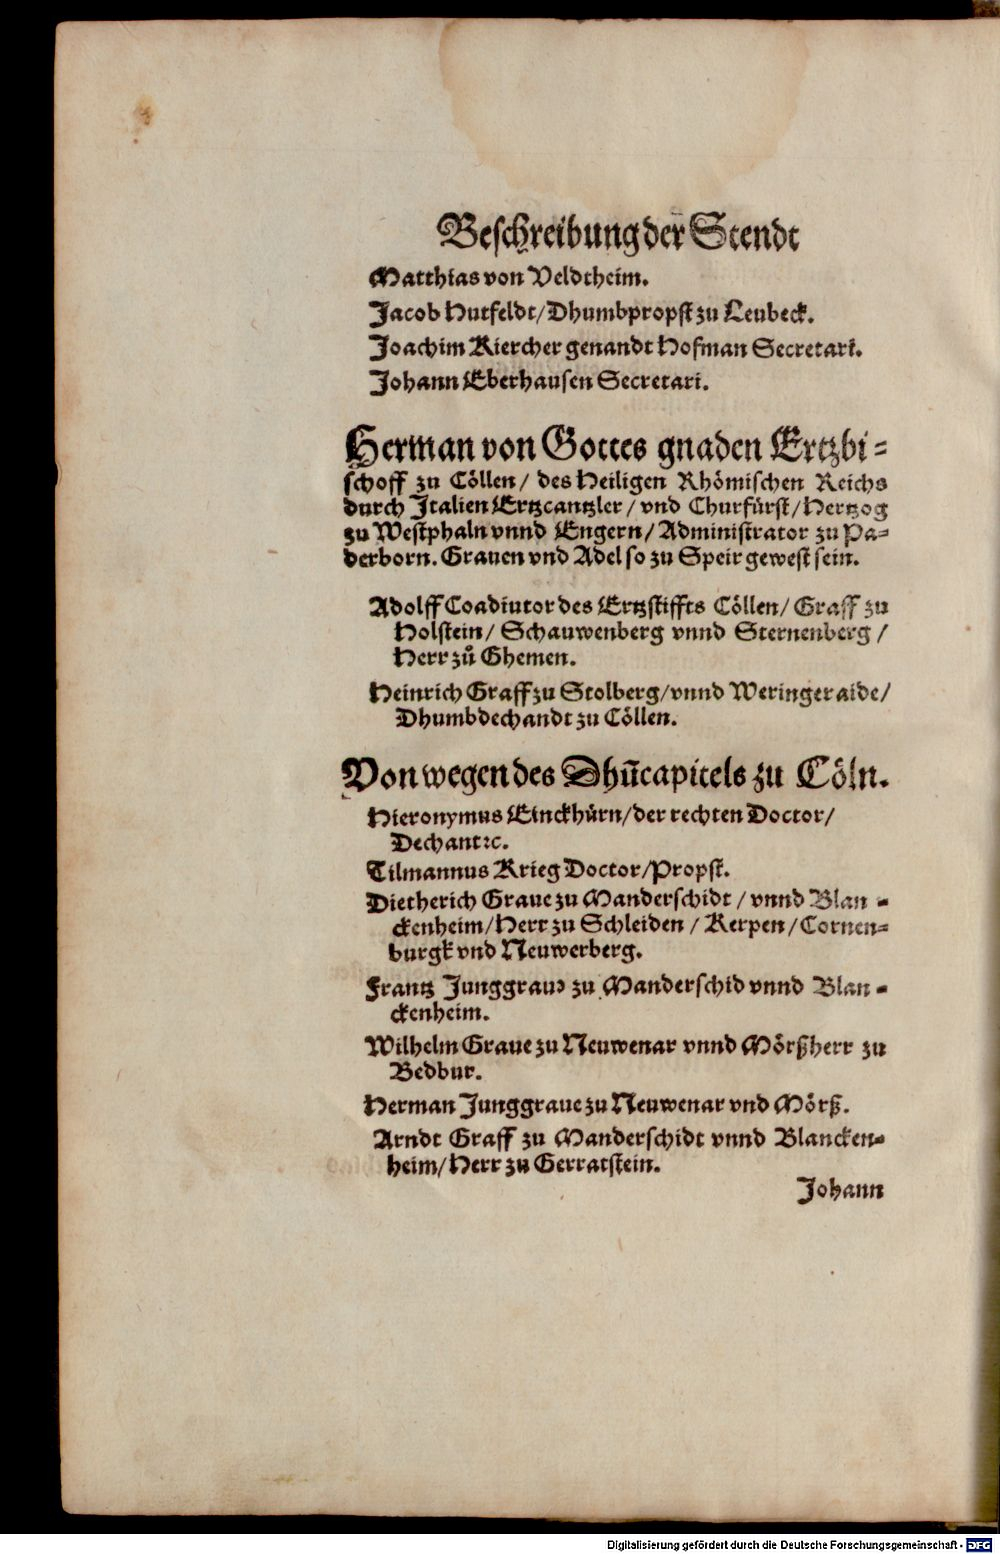 Beschreibung der Stendt
Matthias von Veldtheim.
Jacob Hutfeldt/Dhumbpropst zu Leubeck.
Joachim Kiercher genandt Hofman Secretari.
Johann Eberhausen Secretari.
Herman von Gottes gnaden Ertzbi=
schoff zu Cöllen/ des Heiligen Rhömischen Reichs
durch Italien Ertzcantzler/ vnd Churfürst/Hertzog
zu Westphaln vnnd Engern/ Administrator zu Pa=
derborn. Grauen vnd Adel so zu Speir gewest sein.
Adolff Coadiutor des Ertzstiffts Cöllen/ Graff zu
Holstein/ Schauwenberg vnnd Sternenberg/
Herr zů Ghemen.
Heinrich Graff zu Stolberg/vnnd Weringeraide/
Dhumbdechandt zu Cöllen.
Von wegen des Dhūcapitels zu Cöln.
Hieronymus Einckhürn/der rechten Doctor/
Dechant ꝛc.
Tilmannus Krieg Doctor/Propst.
Dietherich Graue zu Manderschidt/ vnnd Blan=
ckenheim/Herr zu Schleiden/ Kerpen/Cornen=
burgk vnd Neuwerberg.
Frantz Junggraue zu Manderschid vnnd Blan=
ckenheim.
Wilhelm Graue zu Neuwenar vnnd Mörßherr zu
Bedbur.
Herman Junggraue zu Neuwenar vnd Mörß.
Arndt Graff zu Manderschidt vnnd Blancken=
heim/Herr zu Gerratstein.
Johann
Digitalisierung gefördert durch die Deutsche Forschungsgemeinschaft - DFG